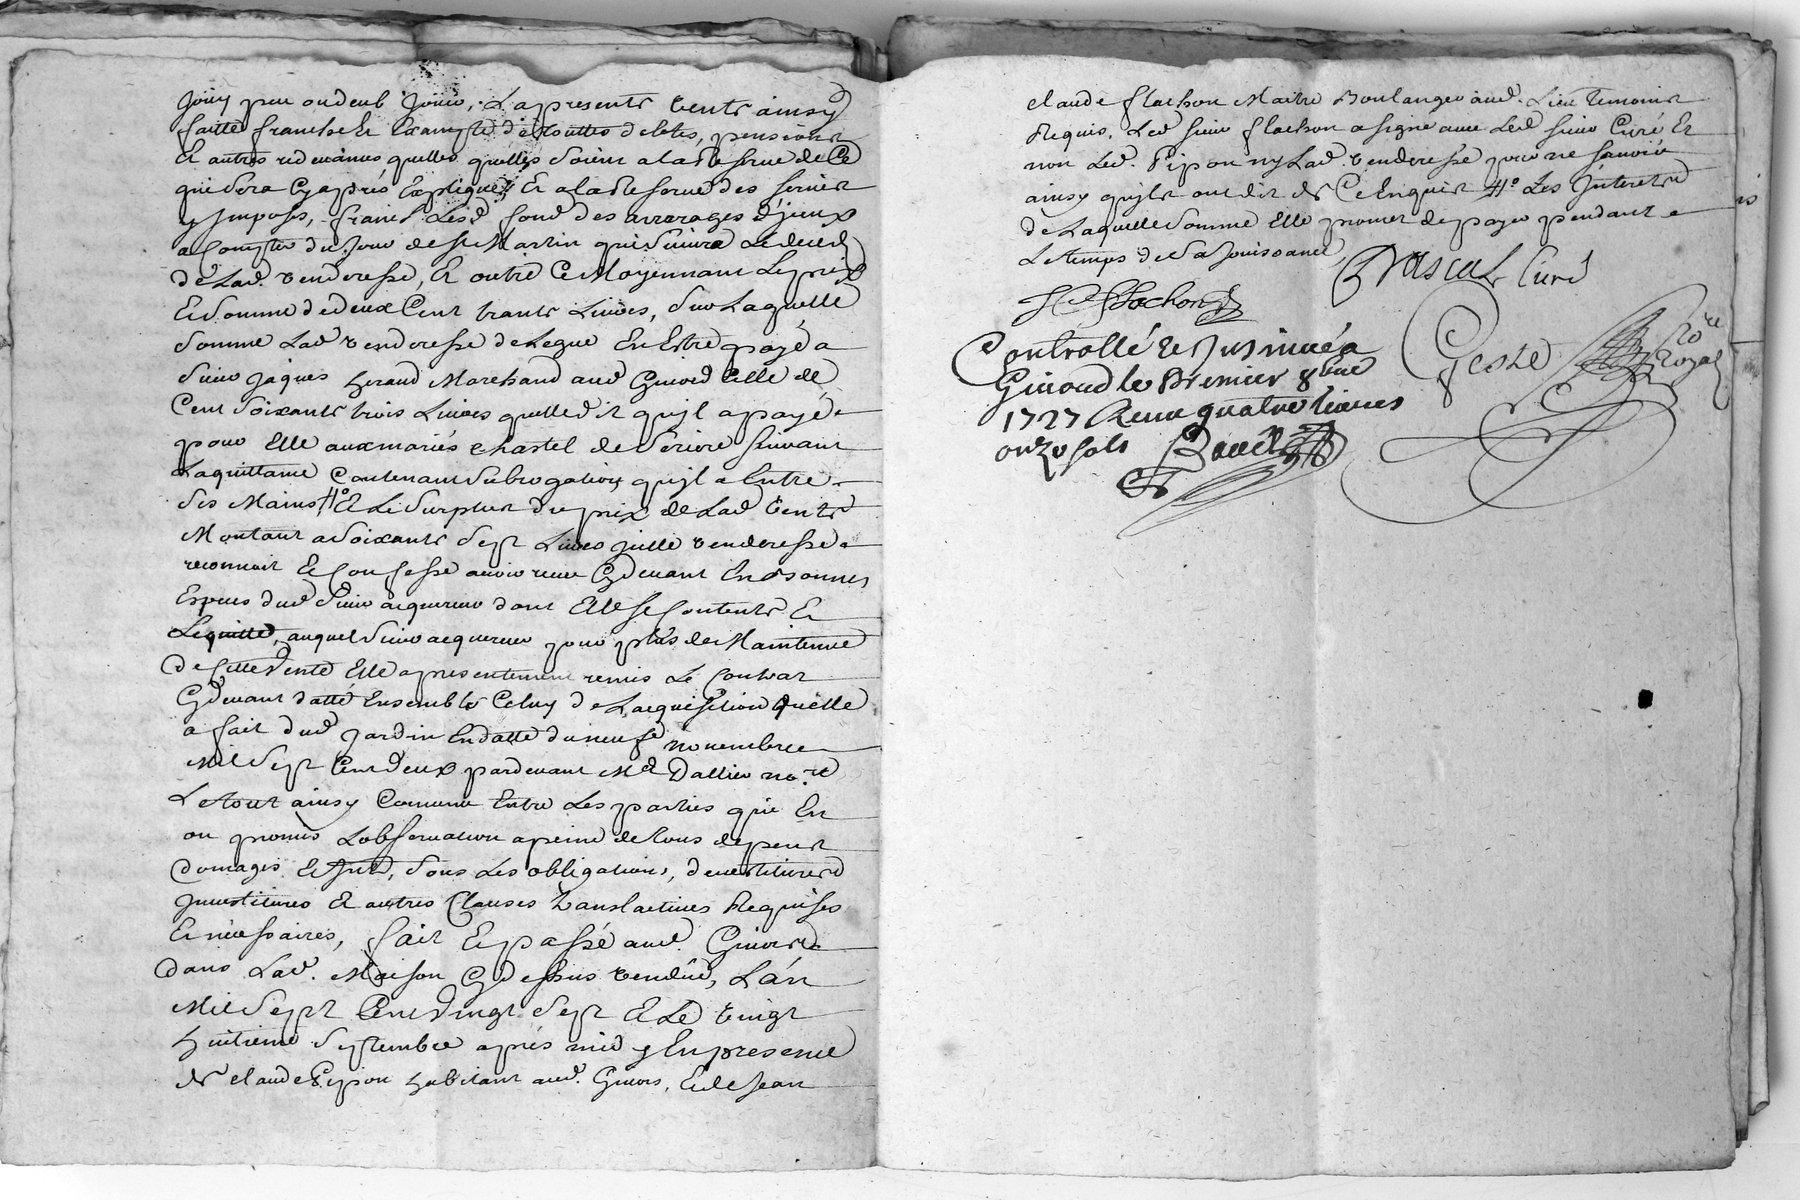 jouy peu ou deub jouir, La presente vente ainsy
faitte franche et exampte de touttes debtes, pensions
et autres redevances quelles quelles soient a la reserve de ce
qui sera cy après expliqué, et a la reserve des servis
y imposés, francs lesd. fond des arrerages d'jceux
a compter du jour de st Martin qui suivra le deced
de lad. venderesse, et outre ce moyennant le prix
et somme de deux cent trante livres, sur laquelle
somme lad venderesse delegue en estre payé a
sieur jaques heraud marchand aud Givord celle de
cent soixante trois livres quelle dit qu'jl a payé
pour elle aux mariés chastel de suivant
la quittance contenant subrogation qujl a entre
ses mains, #o et le surplus du prix de lad vente
montant a soixante sept livres jcelle venderesse
reconnoit et confesse avoir receu cy devant en bonnes
especes dud sieur acquereur dont elle se contente et
le quitte, auquel sieur acquereur pour plus de maintenue
de cette vente elle a presentement remis le contrat
cy devant datté ensemble celuy de l'acquisition quelle
a fait dud jardin en datte du neufe novembre
mil sept cent deux pardevant Me Dallier no.re
Le tout ainsy convenu entre les parties qui en
on promis l'observation a peine de tous depens
domages et jnts, sous les obligations, devestitures
jnvestitures et autres clauses translactives requises
et nécessaires, fait et passé aud. Givord
dans lad. maison cy dessus vendue, L'an
mil sept cent vingt sept et le vingt
huitieme septembre après midy en presence
de claude Pipon habitant aud. Givors, et de jean
claude flachon maitre boulanger aud. lieu temoins
requis, led sieur flachon a signé avec led sieur curé et
non led. Pipon ny lad. venderesse pour ne sçavoir
ainsy qu'jls ont dit de ce enquis #o les jnterets
de laquelle somme elle promet de payer pendant
le temps de sa jouissance
Pascal curé
J C Flachon
Geste no.re Royal
Controllé et jnsinué a
Givord le premier 8bre
1727 Receu quatre livres
onze sols